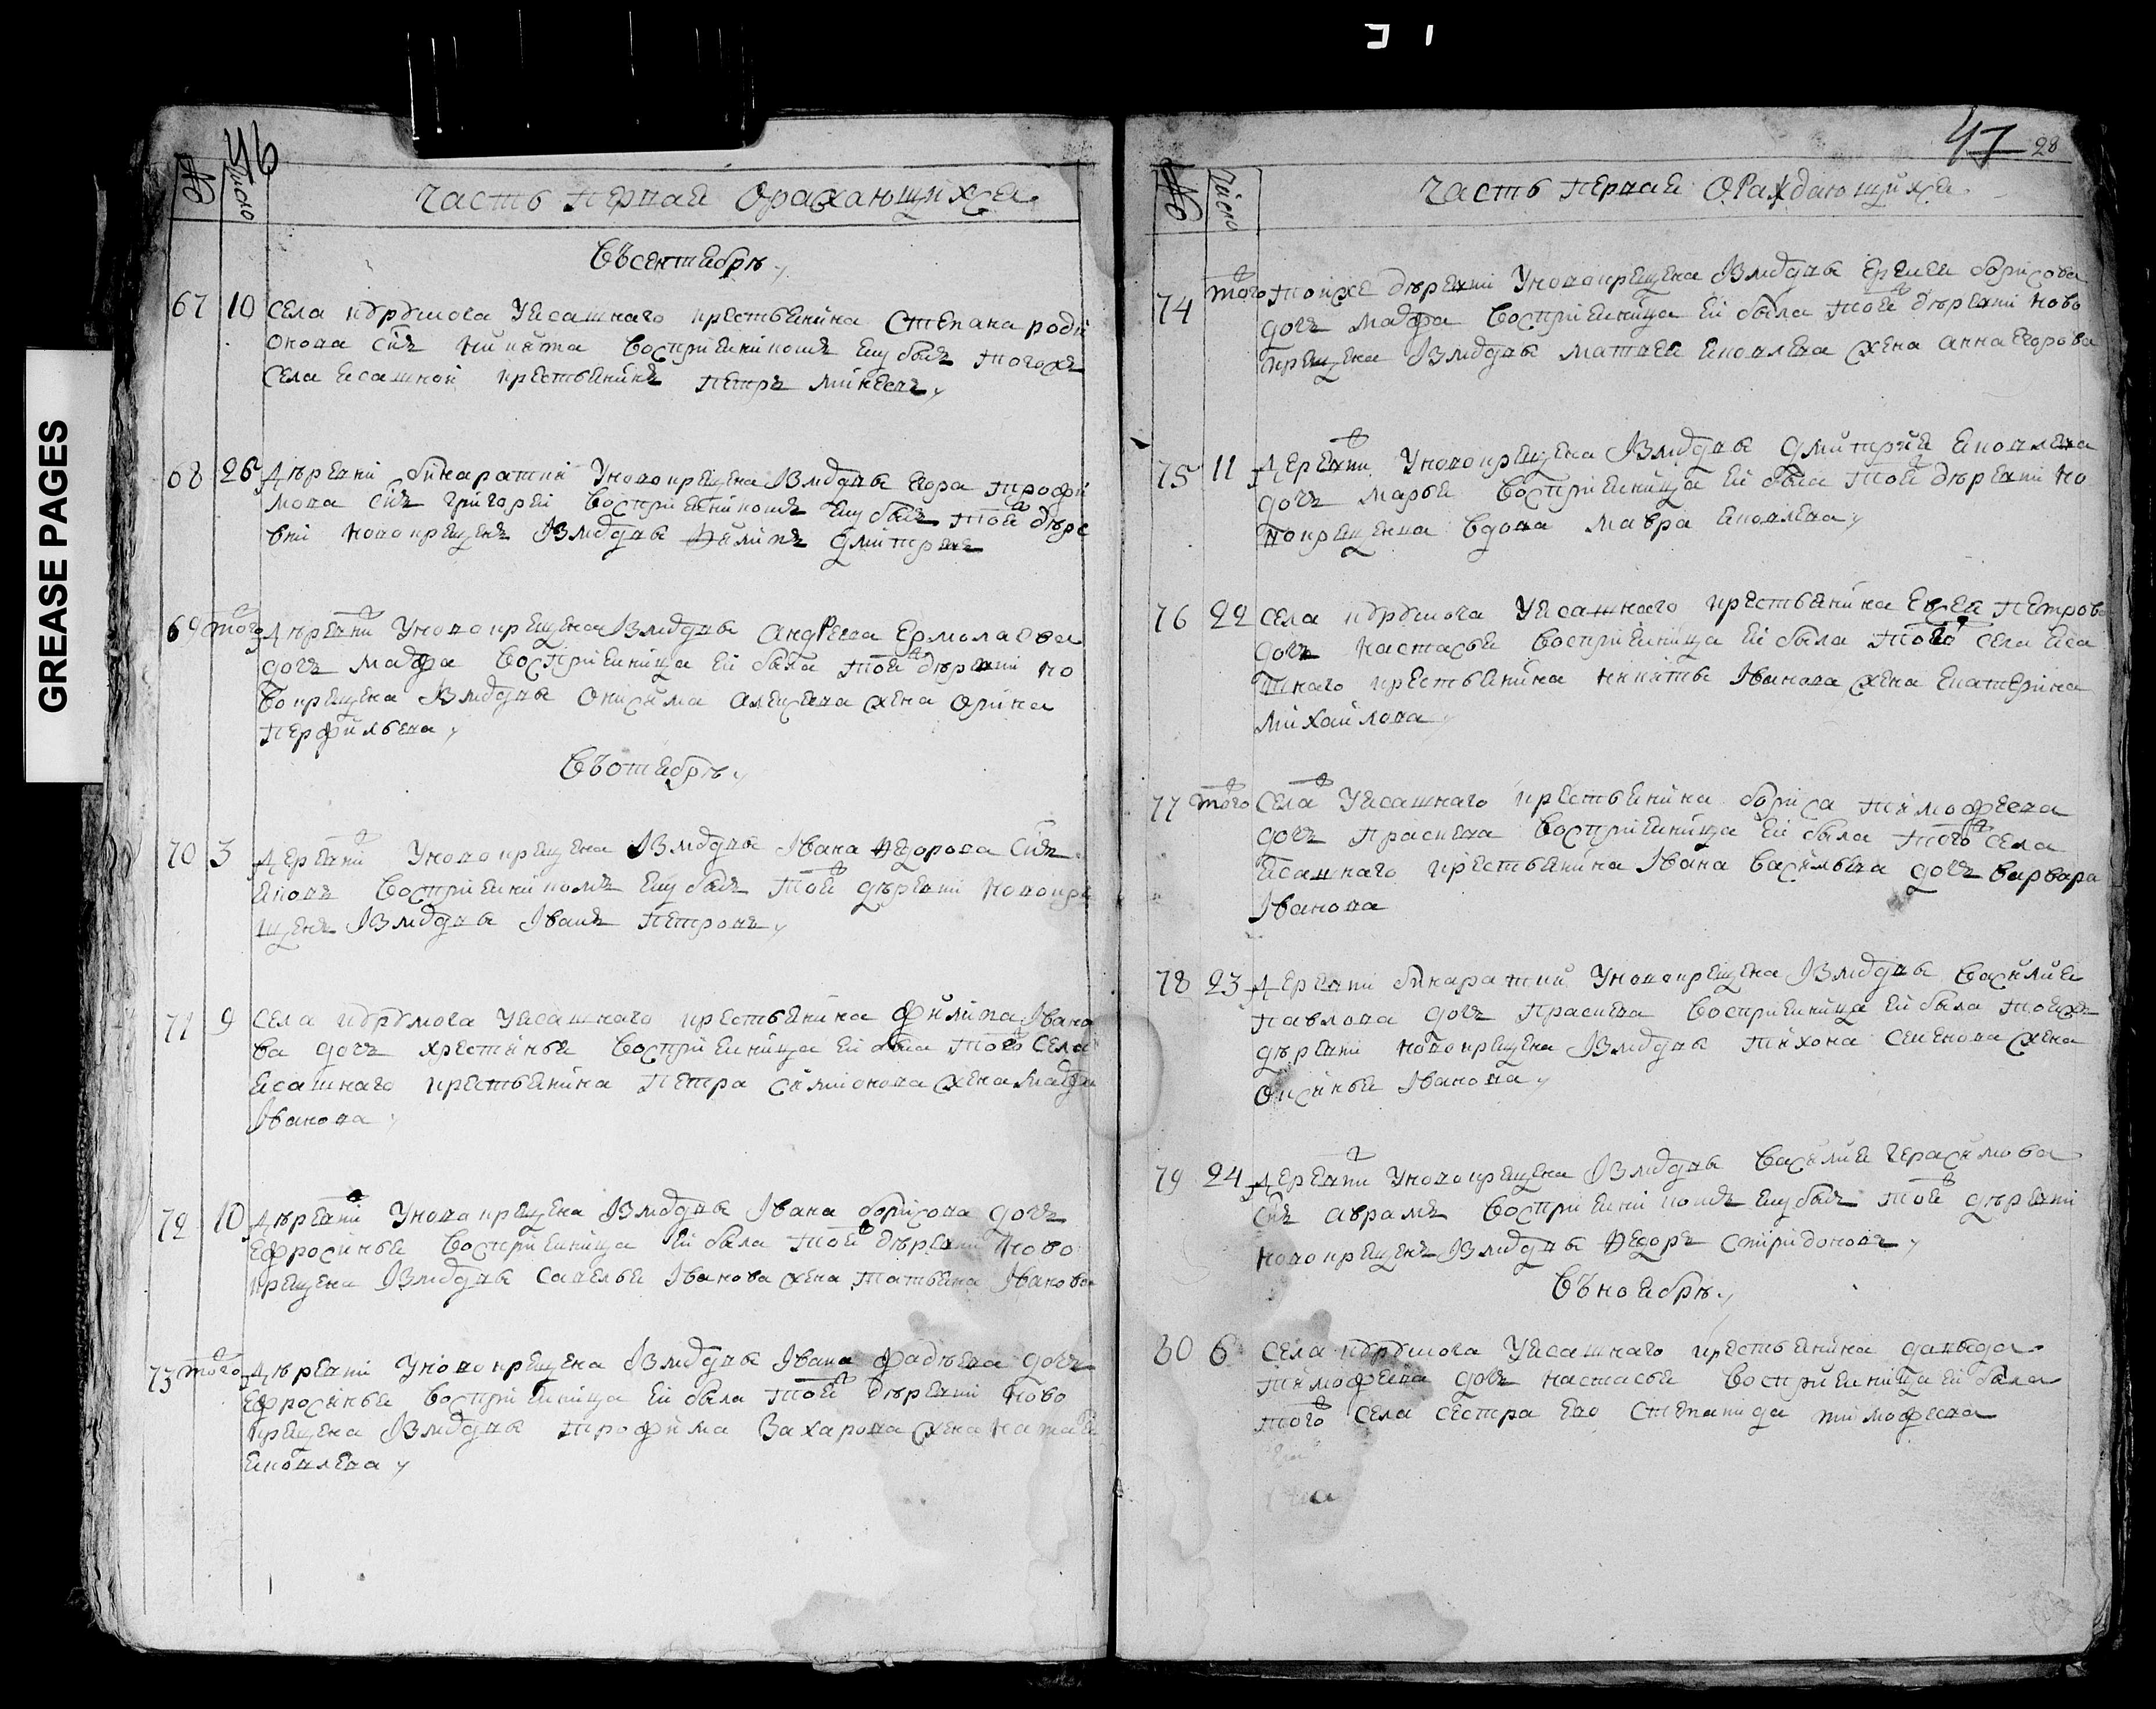 46
№
число
часть первая ораждающихся
въ сентябрѣ
67 10 села
уясашнаго крестьянина степана роди
онова сн҃ъ никита восприемникомъ ему былъ тогожъ
села ясашной крестьянинъ петръ
68 26 дѣревни уновокрещена измордвы егора трофи
мова сн҃ъ григорей восприемникомъ ему былъ той дѣре
вни новокрещенъ измордвы дмитревъ
69 того дѣревни уновокрещена измордвы андрея ермолаева
дочь марфа восприемница ей была той дѣревни но
вокрещена измордвы онисима алексеева жена орина
перфильева
въ октябрѣ
70 3 деревни уновокрещена измордвы ивана федорова сн҃ъ
яковъ восприемникомъ ему былъ той дѣревни новокре
щенъ измордвы иванъ петровъ
71 9 села уясашнаго крестьянина филипа ивано
ва дочь хрестинья восприемница ей была того села
ясашнаго крестьянина петра симионова жена марфа
иванова
72 10 дѣревни уновокрещена измордвы ивана борисова дочь
ефросинья восприемница ей была той дѣревни ново
крещена измордвы савелья иванова жена татьяна иванова
73 того дѣревни уновокрещена измордвы ивана фадѣева дочь
ефросинья восприемница ей была той дѣревни ново
крещена измордвы трофима захарова жена
яковлева
47 28
№
число
часть первая ораждающихся
74 того тойже дѣревни уновокрещена измордвы борисова
дочь марфа восприемница ей была той дѣревни ново
крещена измордвы матвея яковлева жена анна егорова
75 11 деревни уновокрещена измордвы дмитрия яковлева
дочь марья восприемница ей была той дѣревни но
вокрещенка вдова мавра яковлева
76 22 села уясашнаго крестьянина петрова
дочь настасья восприемница ей была того села яса
шнаго крестьянина никиты иванова жена екатерина
михайлова
77 того села уясашнаго крестьянина бориса тимофеева
дочь прасковья восприемница ей была того села
ясашнаго крестьянина ивана васильева дочь варвара
иванова
78 23 деревни уновокрещена измордвы василия
павлова дочь восприемница ей была тойже
дѣревни новокрещена измордвы тихона семенова жена
оксинья иванова
79 24 деревни уновокрещена измордвы василия герасимова
сн҃ъ аврамъ восприемникомъ ему былъ той дѣревни
новокрещенъ измордвы федоръ спиридоновъ
въ ноябрѣ
80 6 села уясашнаго крестьянина давыда
тимофеева дочь настасья восприемница ей была
того села сестра ево степанида тимофеева